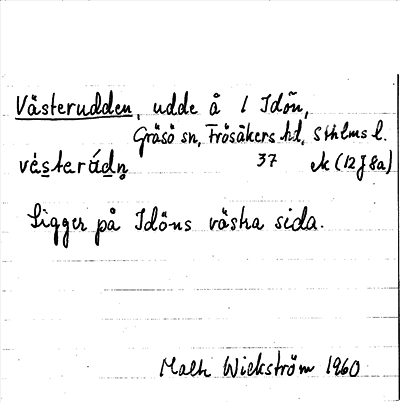 Västerudden, udde å / Idön,
Gräsö sn, Frösåkers hd, Sthlms l.
vèsterúdṇ 37 ek (12J8a)
Ligger på Idöns västra sida.
Wickström 1960